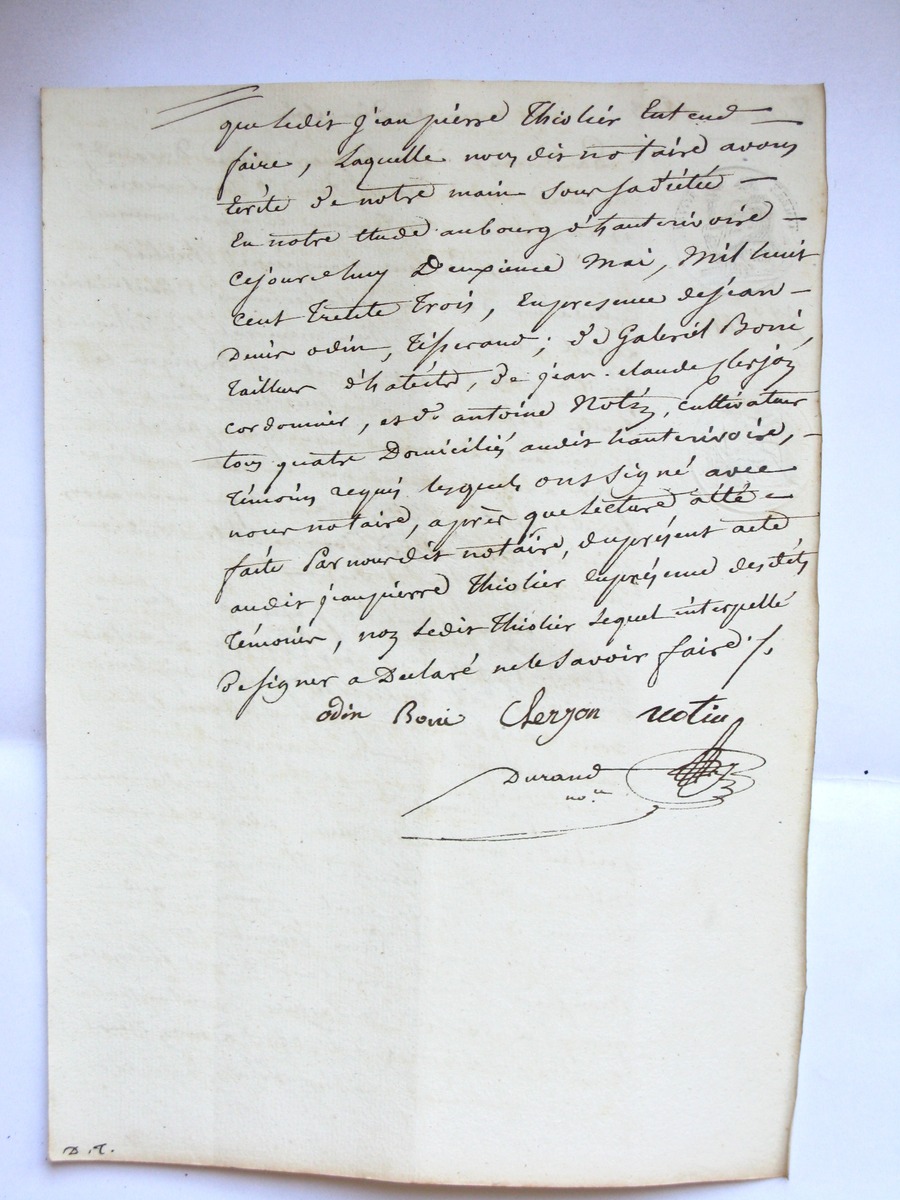 que ledit jean pierre Thiolier Entend
faire, Laquelle nous dit notaire avons
Ecrite de notre main sous sa dictée
En notre Etude au bourg d'hauterivoire
cejourdhuy Deuxieme Mai, Mil huit
cent Trente Trois, En presence de jean
Denis odin, Tisserand; de Gabriel Boni
Tailleur d'habits, de jean-claude Clerjon
cordonnier, et de antoine Notin, cultivateur
tous quatre Domiciliés audit hauterivoire,
Témoins requis lesquels ont signé avec
nous notaire, après que lecture a été
faite Par nous dit notaire, du présent acte
audit jean pierre Thiolier En présence desdits
Témoins, non Ledit Thiolier Lequel interpellé
De signer a Declaré ne le savoir faire ./.
odin Boni Clerjon notin
Durand
no.re
D. T.